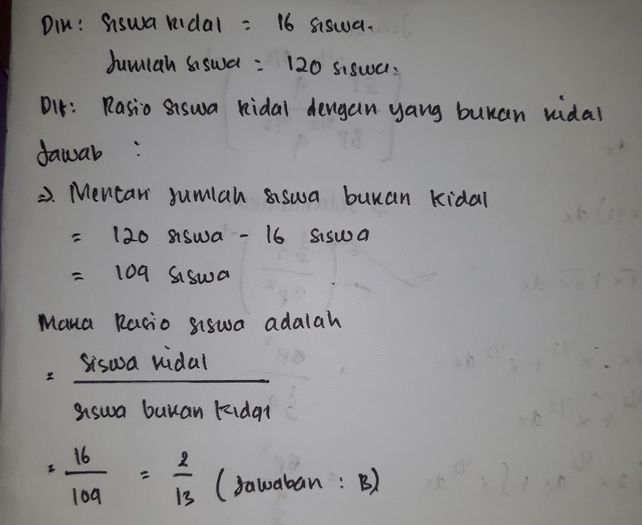 Dik: Siswa kidal = 16 siswa.
Jumlah siswa = 120 siswa.
Dit: Rasio siswa kidal dengan yang bukan kidal
Jawab :
⇒ Mencari jumlah siswa bukan kidal
= 120 siswa - 16 siswa
= 104 siswa
Maka Rasio siswa adalah
= siswa kidal
siswa bukan kidal
= 16/104 = 2/13 (Jawaban : B)